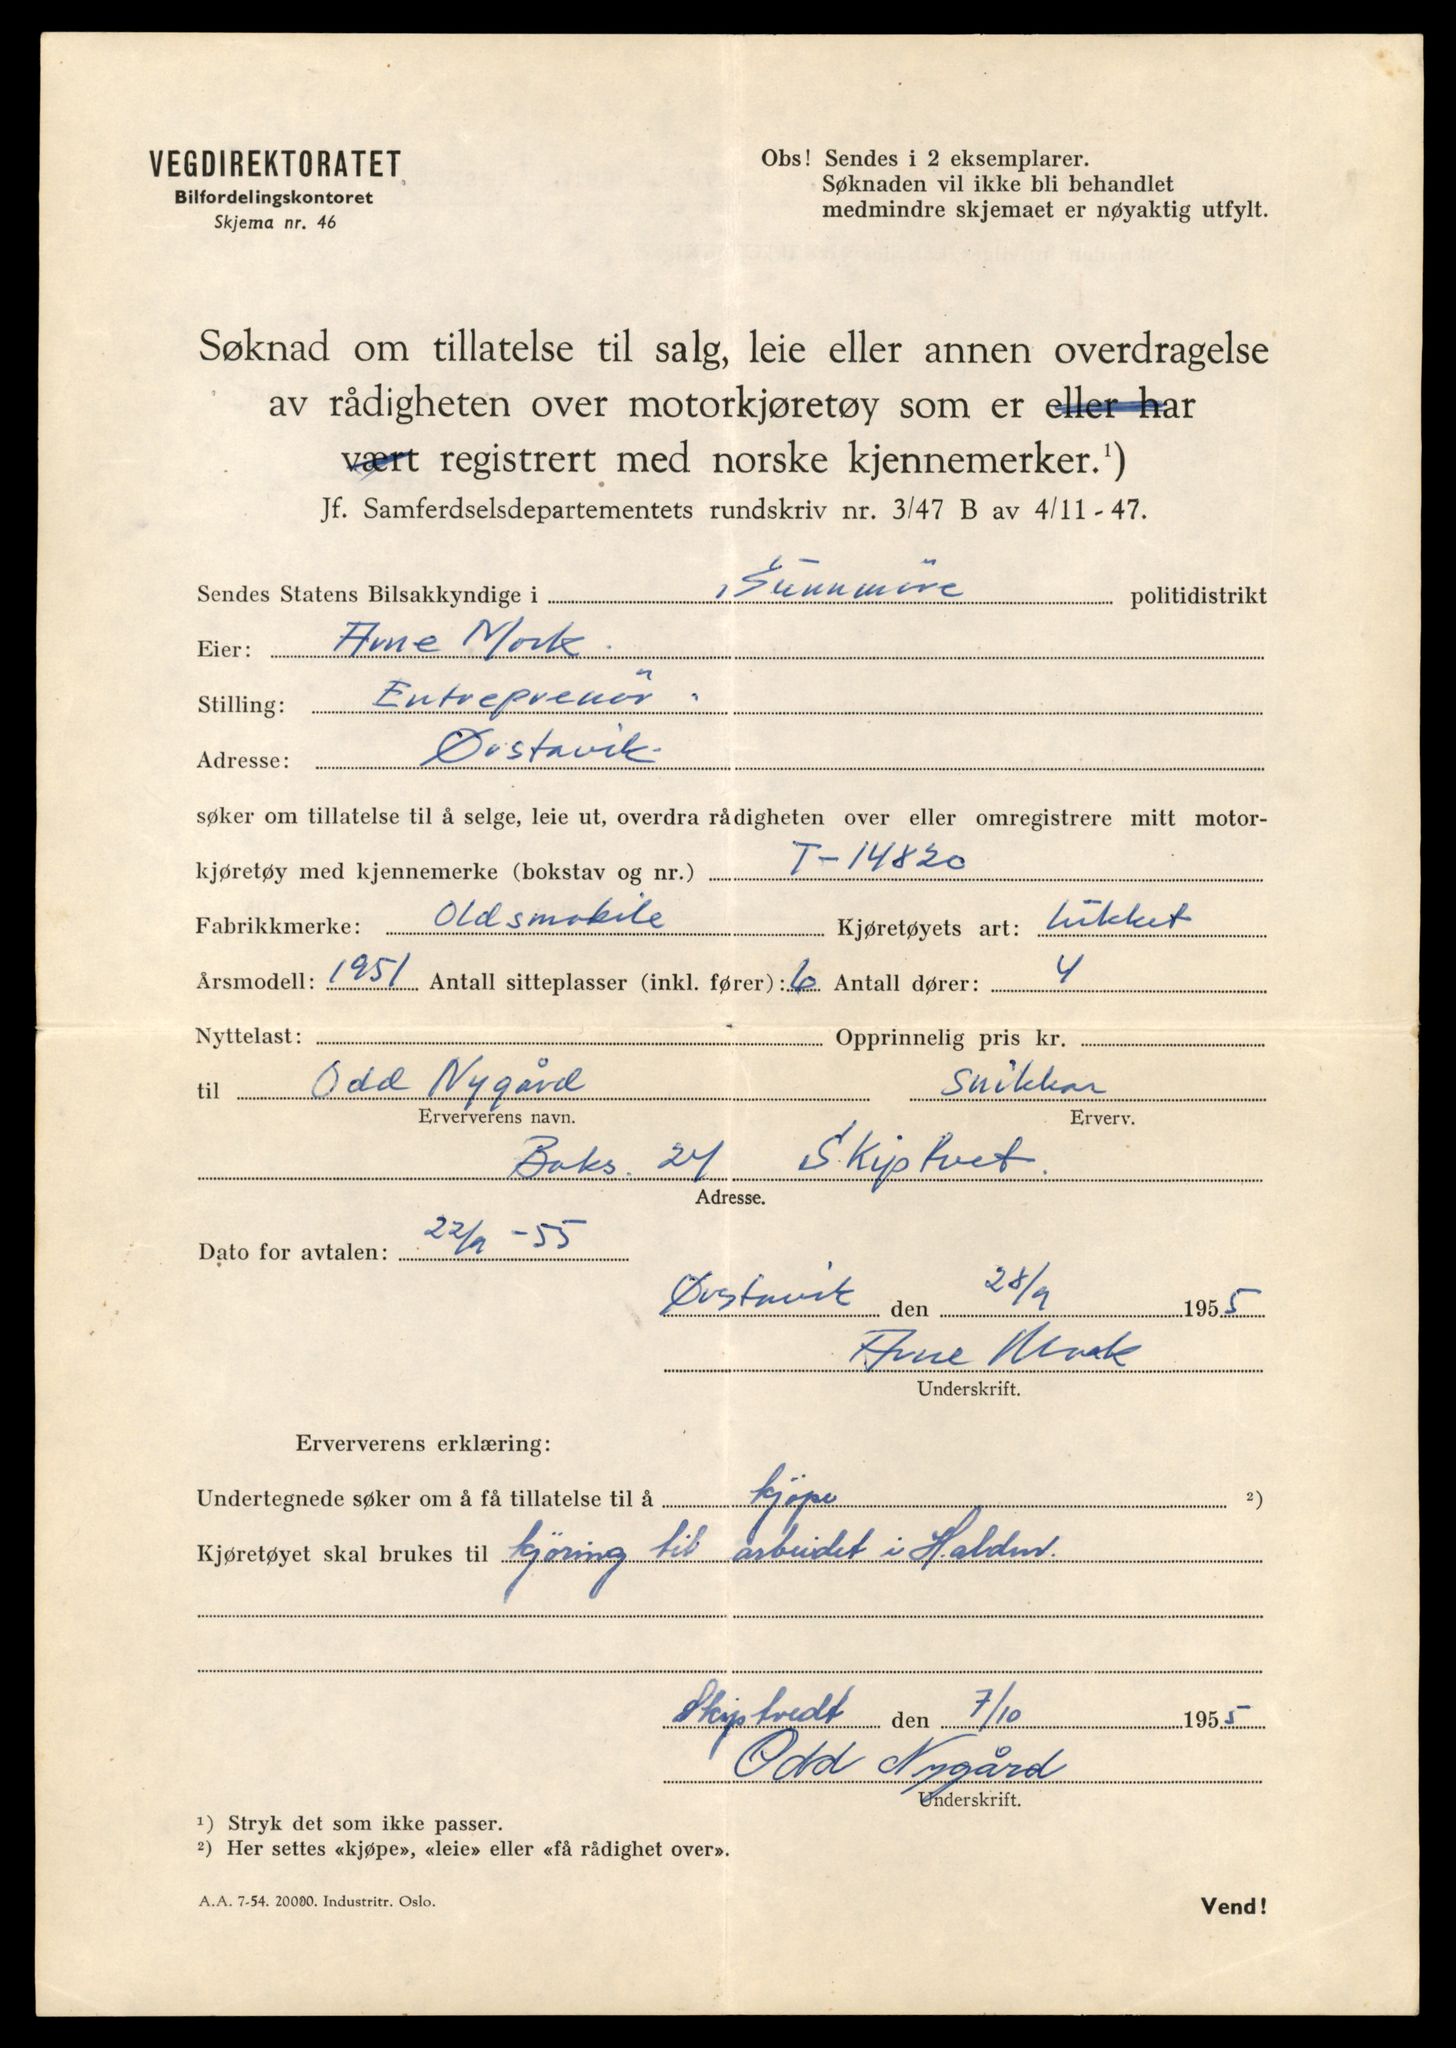 VEGDIREKTORATET
Bilfordelingskontoret
Skjema nr. 46
Obs! Sendes i 2 eksemplarer.
Søknaden vil ikke bli behandlet
medmindre skjemaet er nøyaktig utfylt.
Søknad om tillatelse til salg, leie eller annen overdragelse
av rådigheten over motorkjøretøy som er eller har
vært registrert med norske kjennemerker.¹)
Jf. Samferdselsdepartementets rundskriv nr. 3/47 B av 4/11 - 47.
Sendes Statens Bilsakkyndige i Sunnmöre politidistrikt
Eier: Arne Mork.
Stilling: Entreprenör.
Adresse: Ørstavik.
søker om tillatelse til å selge, leie ut, overdra rådigheten over eller omregistrere mitt motor-
kjøretøy med kjennemerke (bokstav og nr.) T-14820
Fabrikkmerke: Oldsmobile Kjøretøyets art: Lukket
Årsmodell: 1951 Antall sitteplasser (inkl. fører): 6 Antall dører: 4
Nyttelast: Opprinnelig pris kr.
til Odd Nygård snikkar
Erververens navn. Erverv.
Boks. 24 Skiptvet.
Adresse.
Dato for avtalen: 22/9 -55
Ørstavik den 28/9 1955
Arne Mork
Underskrift.
Erververens erklæring:
Undertegnede søker om å få tillatelse til å kjöpe ²)
Kjøretøyet skal brukes til kjöring til arbeidet i Halden.
Skiptvedt den 7/10 1955
Odd Nygård
Underskrift.
¹) Stryk det som ikke passer.
²) Her settes «kjøpe», «leie» eller «få rådighet over».
A.A. 7-54. 20000. Industritr. Oslo.
Vend!